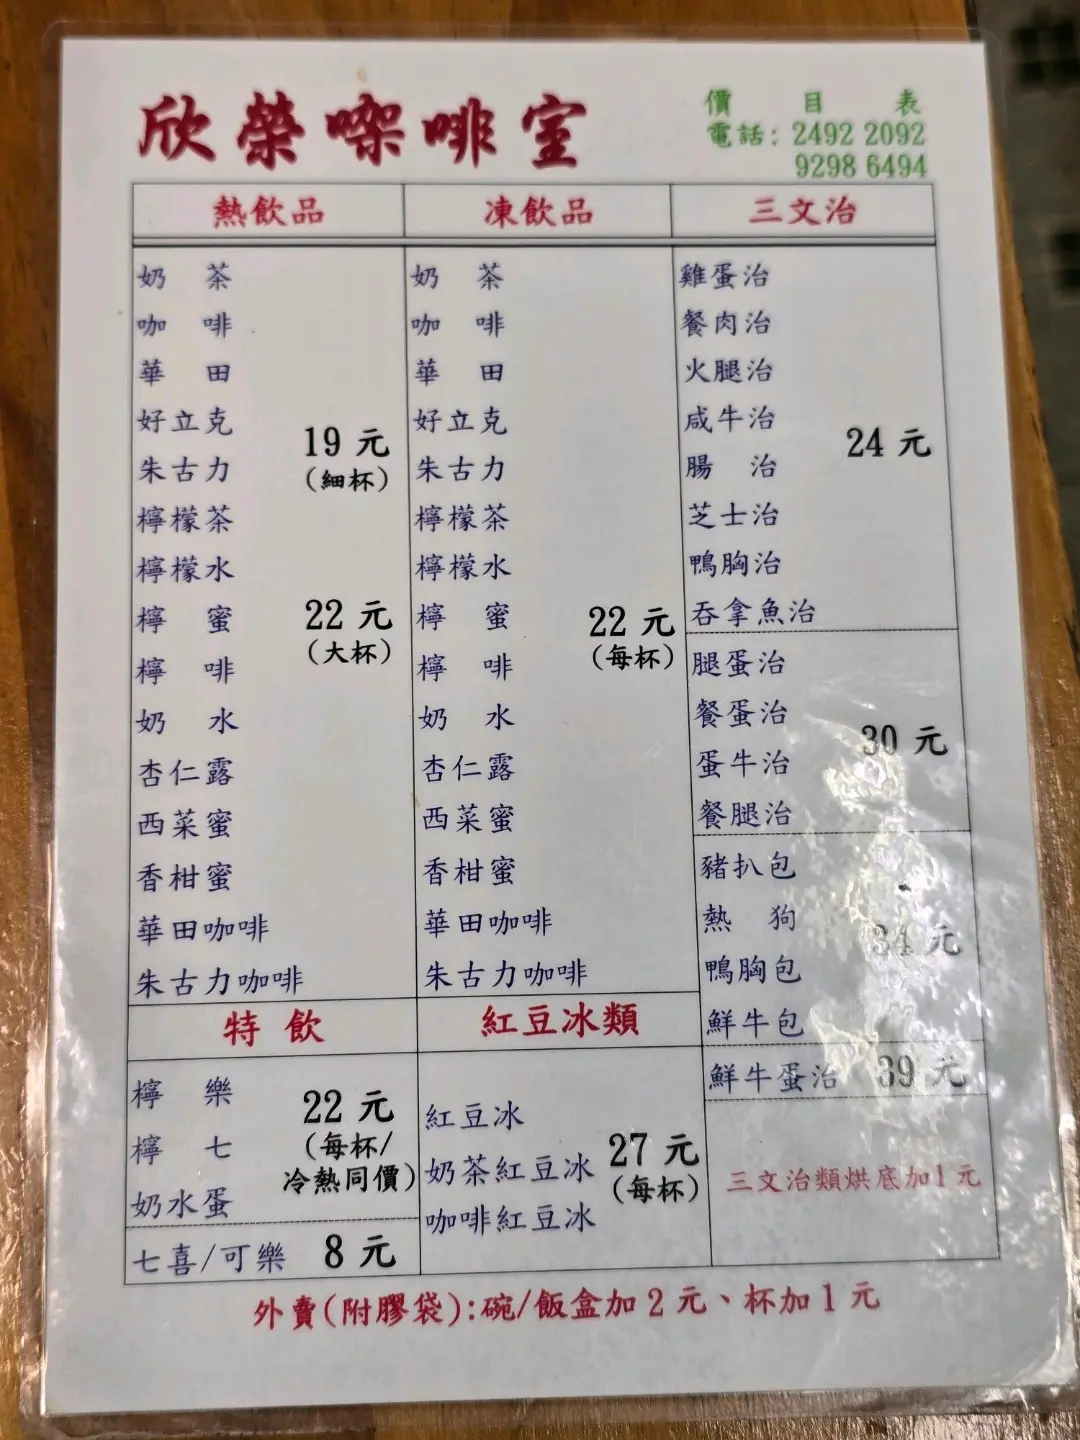 欣榮㗎啡室
價目表
電話: 2492 2092
9298 6494
熱飲品
奶茶
咖啡
華田
好立克
朱古力
檸檬茶
檸檬水
檸蜜
檸啡
奶水
杏仁露
西菜蜜
香柑蜜
華田咖啡
朱古力咖啡
19 元
(細杯)
22 元
(大杯)
凍飲品
奶茶
咖啡
華田
好立克
朱古力
檸檬茶
檸檬水
檸蜜
檸啡
奶水
杏仁露
西菜蜜
香柑蜜
華田咖啡
朱古力咖啡
22 元
(每杯)
三文治
雞蛋治
餐肉治
火腿治
咸牛治
腸治
芝士治
鴨胸治
吞拿魚治
24 元
腿蛋治
餐蛋治
蛋牛治
餐腿治
30 元
豬扒包
熱狗
鴨胸包
鮮牛包
34 元
鮮牛蛋治 39 元
三文治類烘底加1元
特飲
檸樂
檸七
奶水蛋
22 元
(每杯/
冷熱同價)
七喜/可樂 8 元
紅豆冰類
紅豆冰
奶茶紅豆冰
咖啡紅豆冰
27 元
(每杯)
外賣(附膠袋):碗/飯盒加2元、杯加1元